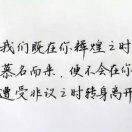 我们既在你辉煌之时
慕名而来，便不会在你
遭受非议之时转身离开